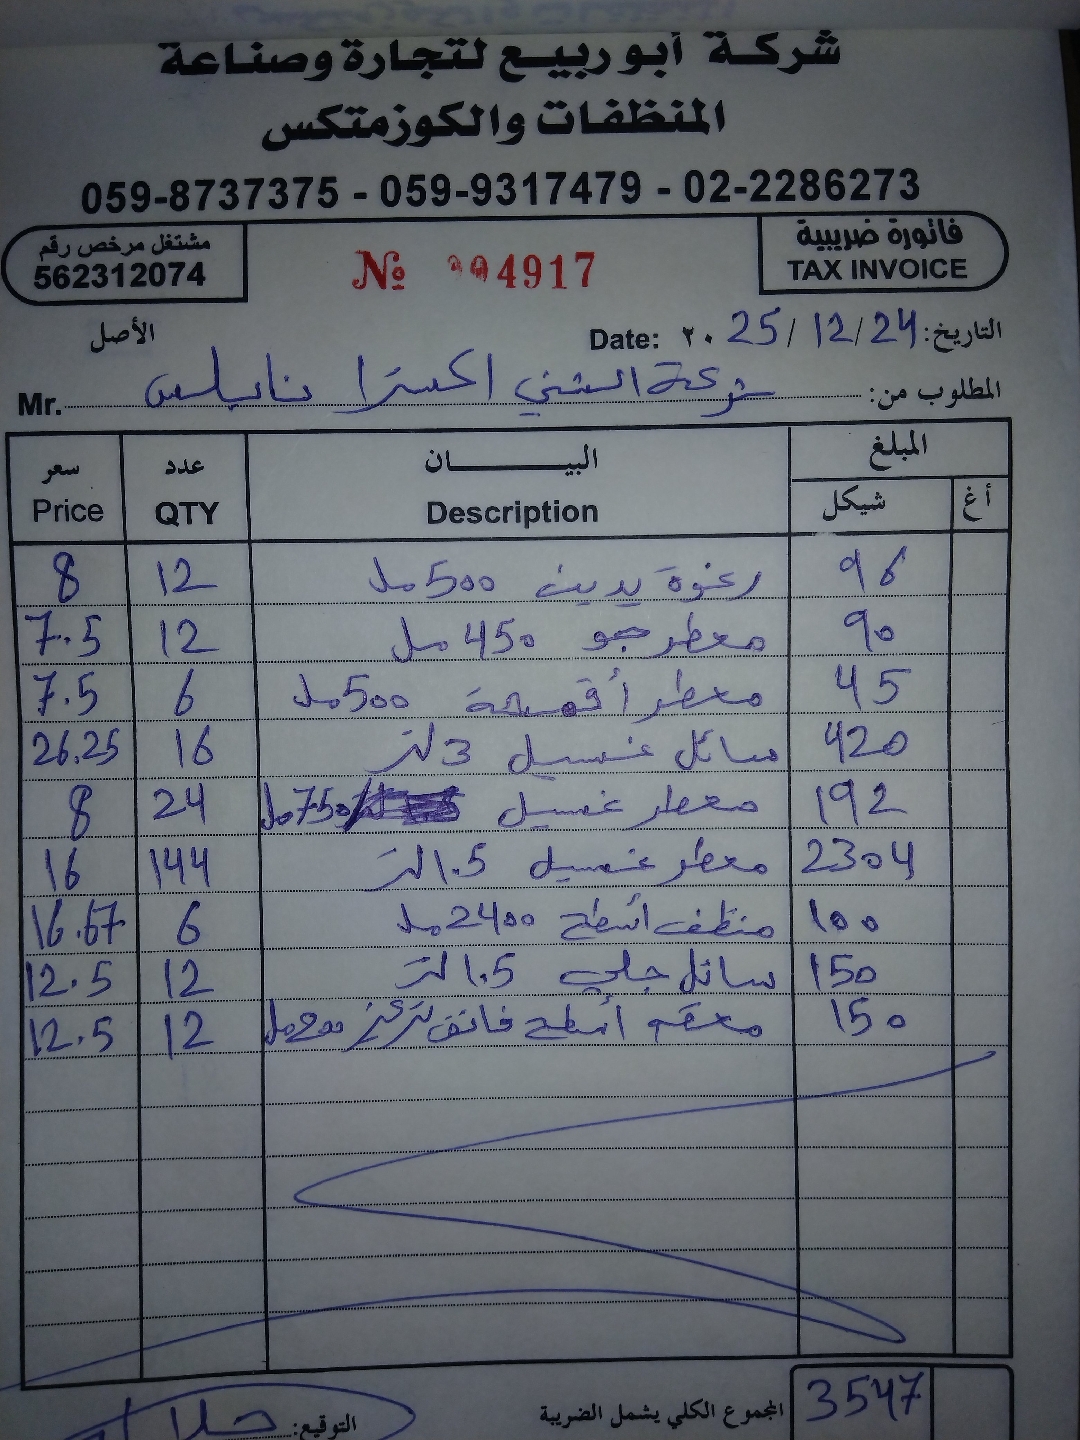 شركة أبو ربيع لتجارة وصناعة
المنظفات والكوزمتكس
059-8737375 - 059-9317479 - 02-2286273
فاتورة ضريبية
TAX INVOICE
№ 4917
مشتغل مرخص رقم
562312074
التاريخ: 24/12/2025 Date:
الأصل
المطلوب من: الشني اكسترا نابلس Mr.
المبلغ البيـــــــان عدد سعر
أغ شيكل Description QTY Price
96 رغوة يدين 500 مل 12 8
90 معطر جو 450 مل 12 7.5
45 معطر أقمشة 500 مل 6 7.5
420 سائل غسيل 3 لتر 16 26.25
192 معطر غسيل 750 مل 24 8
2304 معطر غسيل 1.5 لتر 144 16
100 منظف اسطح 2400 مل 6 16.67
150 سائل جلي 1.5 لتر 12 12.5
150 معقم أسطح فائق تركيز مل 12 12.5
3547 المجموع الكلي يشمل الضريبة
التوقيع: